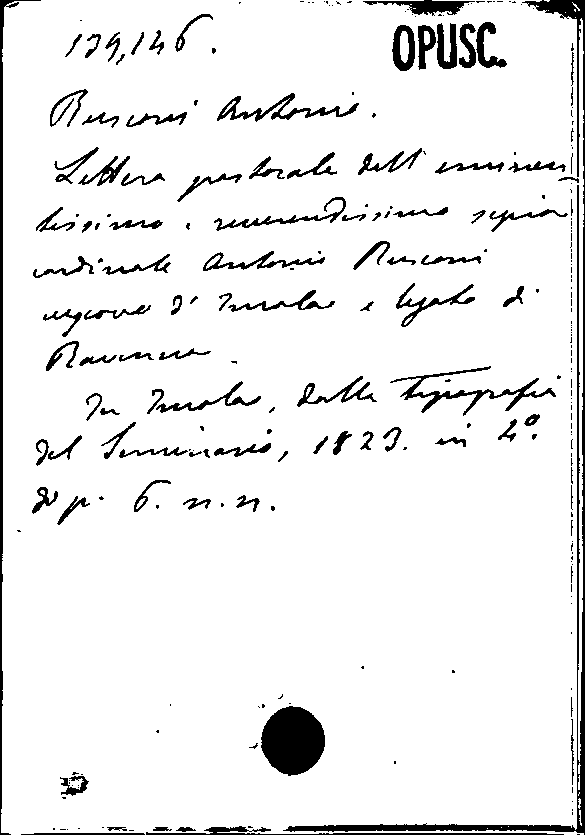 139,146. OPUSC.
Rusconi Antonio.
Lettera pastorale dell' eminen
tissimo e reverendissimo signor
cardinale Antonio Rusconi
vescovo d' Imola e legato di
Ravenna
In Imola, dalla tipografia
del Seminario, 1823. in 4º.
di p. 6. n.n.